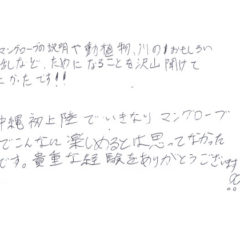 マングローブの説明や動植物、川のおもしろい
話しなど、ためになることを沢山聞けて
よかったです!!
沖縄初上陸でいきなりマングローブ
でこんなに楽しめるとは思ってなかった
です。貴重な経験をありがとうございます